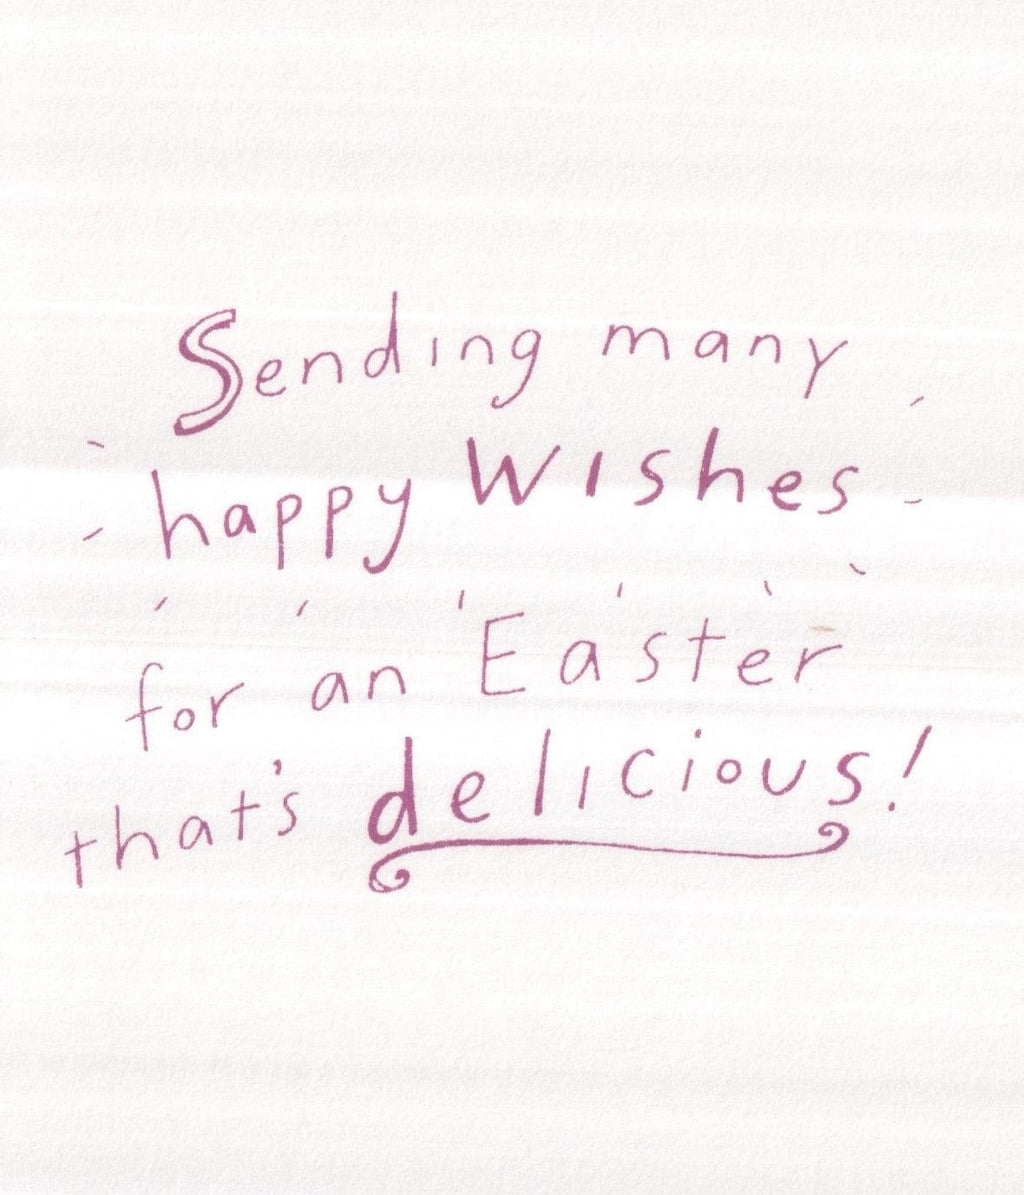 Sending many
happy Wishes
for an Easter
that's delicious!